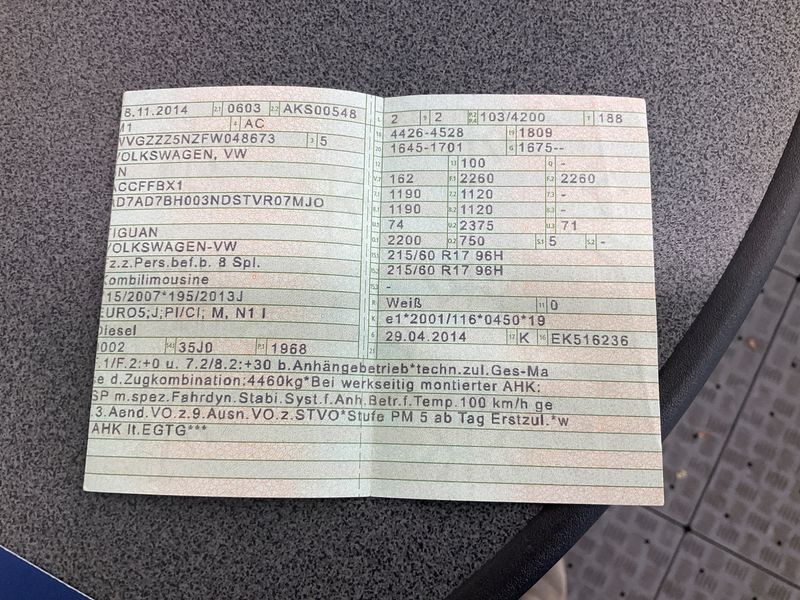 8.11.2014 2.1 0603 2.2 AKS00548
M1 4 AC
WVGZZZ5NZFW048673 3 5
VOLKSWAGEN, VW
N
ACCFFBX1
AD7AD7BH003NDSTVR07MJO
TIGUAN
VOLKSWAGEN-VW
Fz.z.Pers.bef.b. 8 Spl.
Kombilimousine
715/2007*195/2013J
EURO5;J;PI/CI; M, N1 I
Diesel
0002 35J0 P.1 1968
L 2 9 2 P.2 P.4 103/4200 T 188
18 4426-4528 19 1809
20 1645-1701 G 1675--
12 - 13 100 Q -
V.7 162 F.1 2260 F.2 2260
7.1 1190 7.2 1120 7.3 -
8.1 1190 8.2 1120 8.3 -
U.1 74 U.2 2375 U.3 71
O.1 2200 O.2 750 S.1 5 S.2 -
15.1 215/60 R17 96H
15.2 215/60 R17 96H
15.3 -
R Weiß 11 0
K e1*2001/116*0450*19
6 29.04.2014 17 K 16 EK516236
21
.1/F.2:+0 u. 7.2/8.2:+30 b.Anhängebetrieb*techn.zul.Ges-Ma
se d.Zugkombination:4460kg*Bei werkseitig montierter AHK:
SP m.spez.Fahrdyn.Stabi.Syst.f.Anh.Betr.f.Temp.100 km/h ge
3.Aend.VO.z.9.Ausn.VO.z.STVO*Stufe PM 5 ab Tag Erstzul.*w
AHK lt.EGTG***